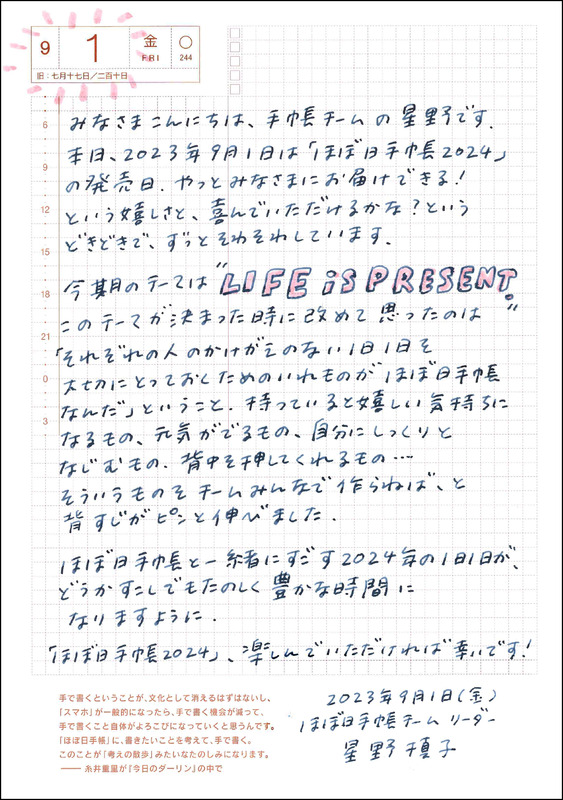 9 1 金 ○
FRI 244
旧:七月十七日/二百十日
みなさまこんにちは、手帳チームの星野です.
本日、2023年9月1日は「ほぼ日手帳2024」
の発売日. やっとみなさまにお届けできる!
という嬉しさと、喜んでいただけるかな?という
どきどきで、ずっとそわそわしています.
今期のテーマは"LIFE iS PRESENT."
このテーマが決まった時に改めて思ったのは
「それぞれの人のかけがえのない1日1日を
大切にとっておくためのいれものがほぼ日手帳
なんだ」ということ. 持っていると嬉しい気持ちに
なるもの、元気がでるもの、自分にしっくりと
なじむもの. 背中を押してくれるもの…
そういうものをチームみんなで作らねば、と
背すじがピンと伸びました.
ほぼ日手帳と一緒にすごす2024年の1日1日が、
どうかすこしでもたのしく豊かな時間に
なりますように.
「ほぼ日手帳2024」、楽しんでいただければ幸いです!
2023年9月1日(金)
ほぼ日手帳チームリーダー
星野槙子
6
9
12
15
18
21
0
3
手で書くということが、文化として消えるはずはないし、
「スマホ」が一般的になったら、手で書く機会が減って、
手で書くこと自体がよろこびになっていくと思うんです。
『ほぼ日手帳』に、書きたいことを考えて、手で書く。
このことが「考えの散歩」みたいなたのしみになります。
―― 糸井重里が『今日のダーリン』の中で